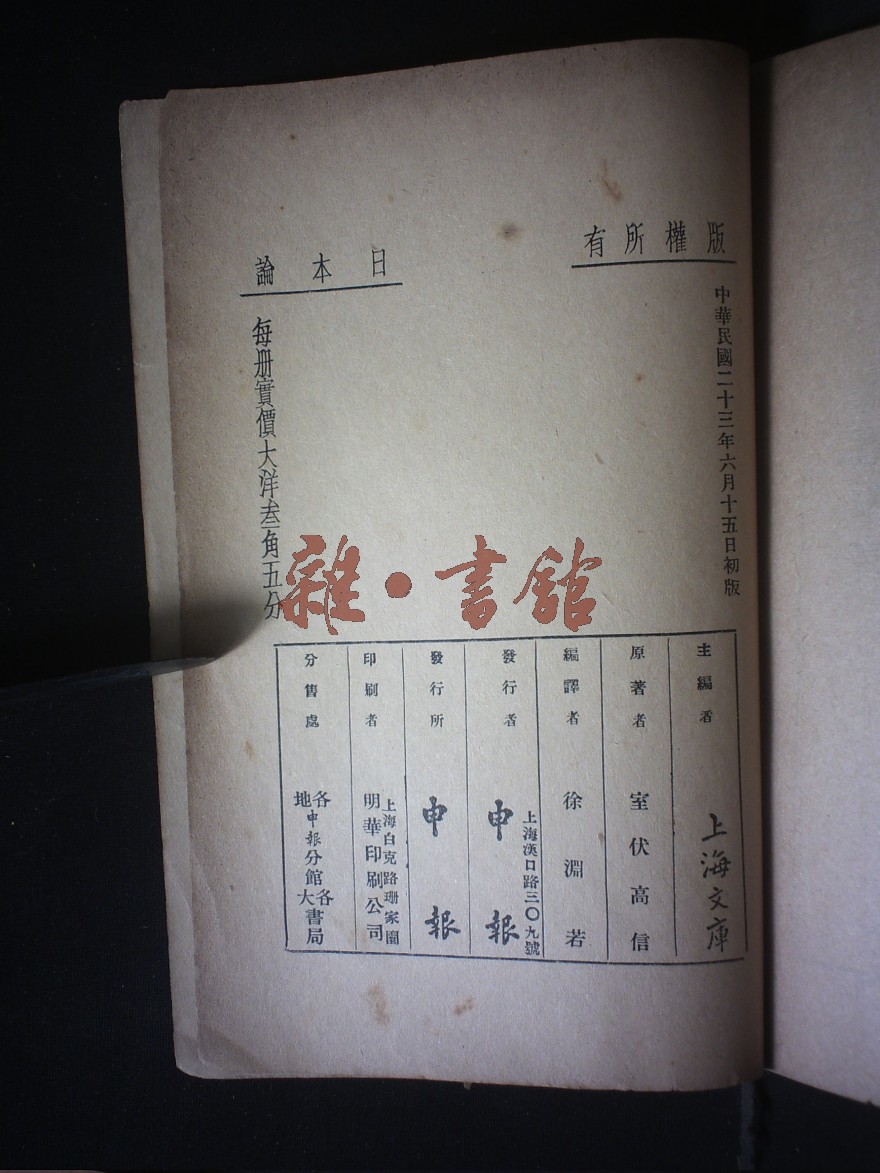 版權所有
中華民國二十三年六月十五日初版
日本論
每册實價大洋叁角五分
雜·書館
主編者
上海文庫
原著者
室伏高信
編譯者
徐淵若
發行者
上海漢口路三〇九號
申報
發行所
申報
印刷者
上海白克路珊家園
明華印刷公司
分售處
各地申報分館
各大書局